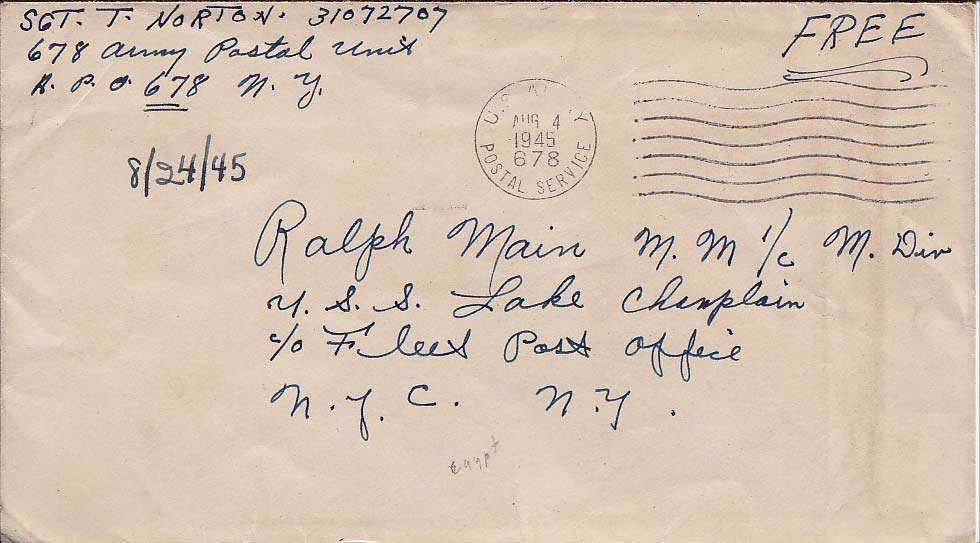 SGT. T. NORTON. 31072707
678 Army Postal Unit
A. P. O. 678 N. Y.
FREE
U.S. ARMY
AUG 4
1945
678
POSTAL SERVICE
8/24/45
Ralph Main M. M 1/c M. Div
U. S. S. Lake Champlain
c/o Fleet Post Office
N. Y. C. N. Y.
Egypt